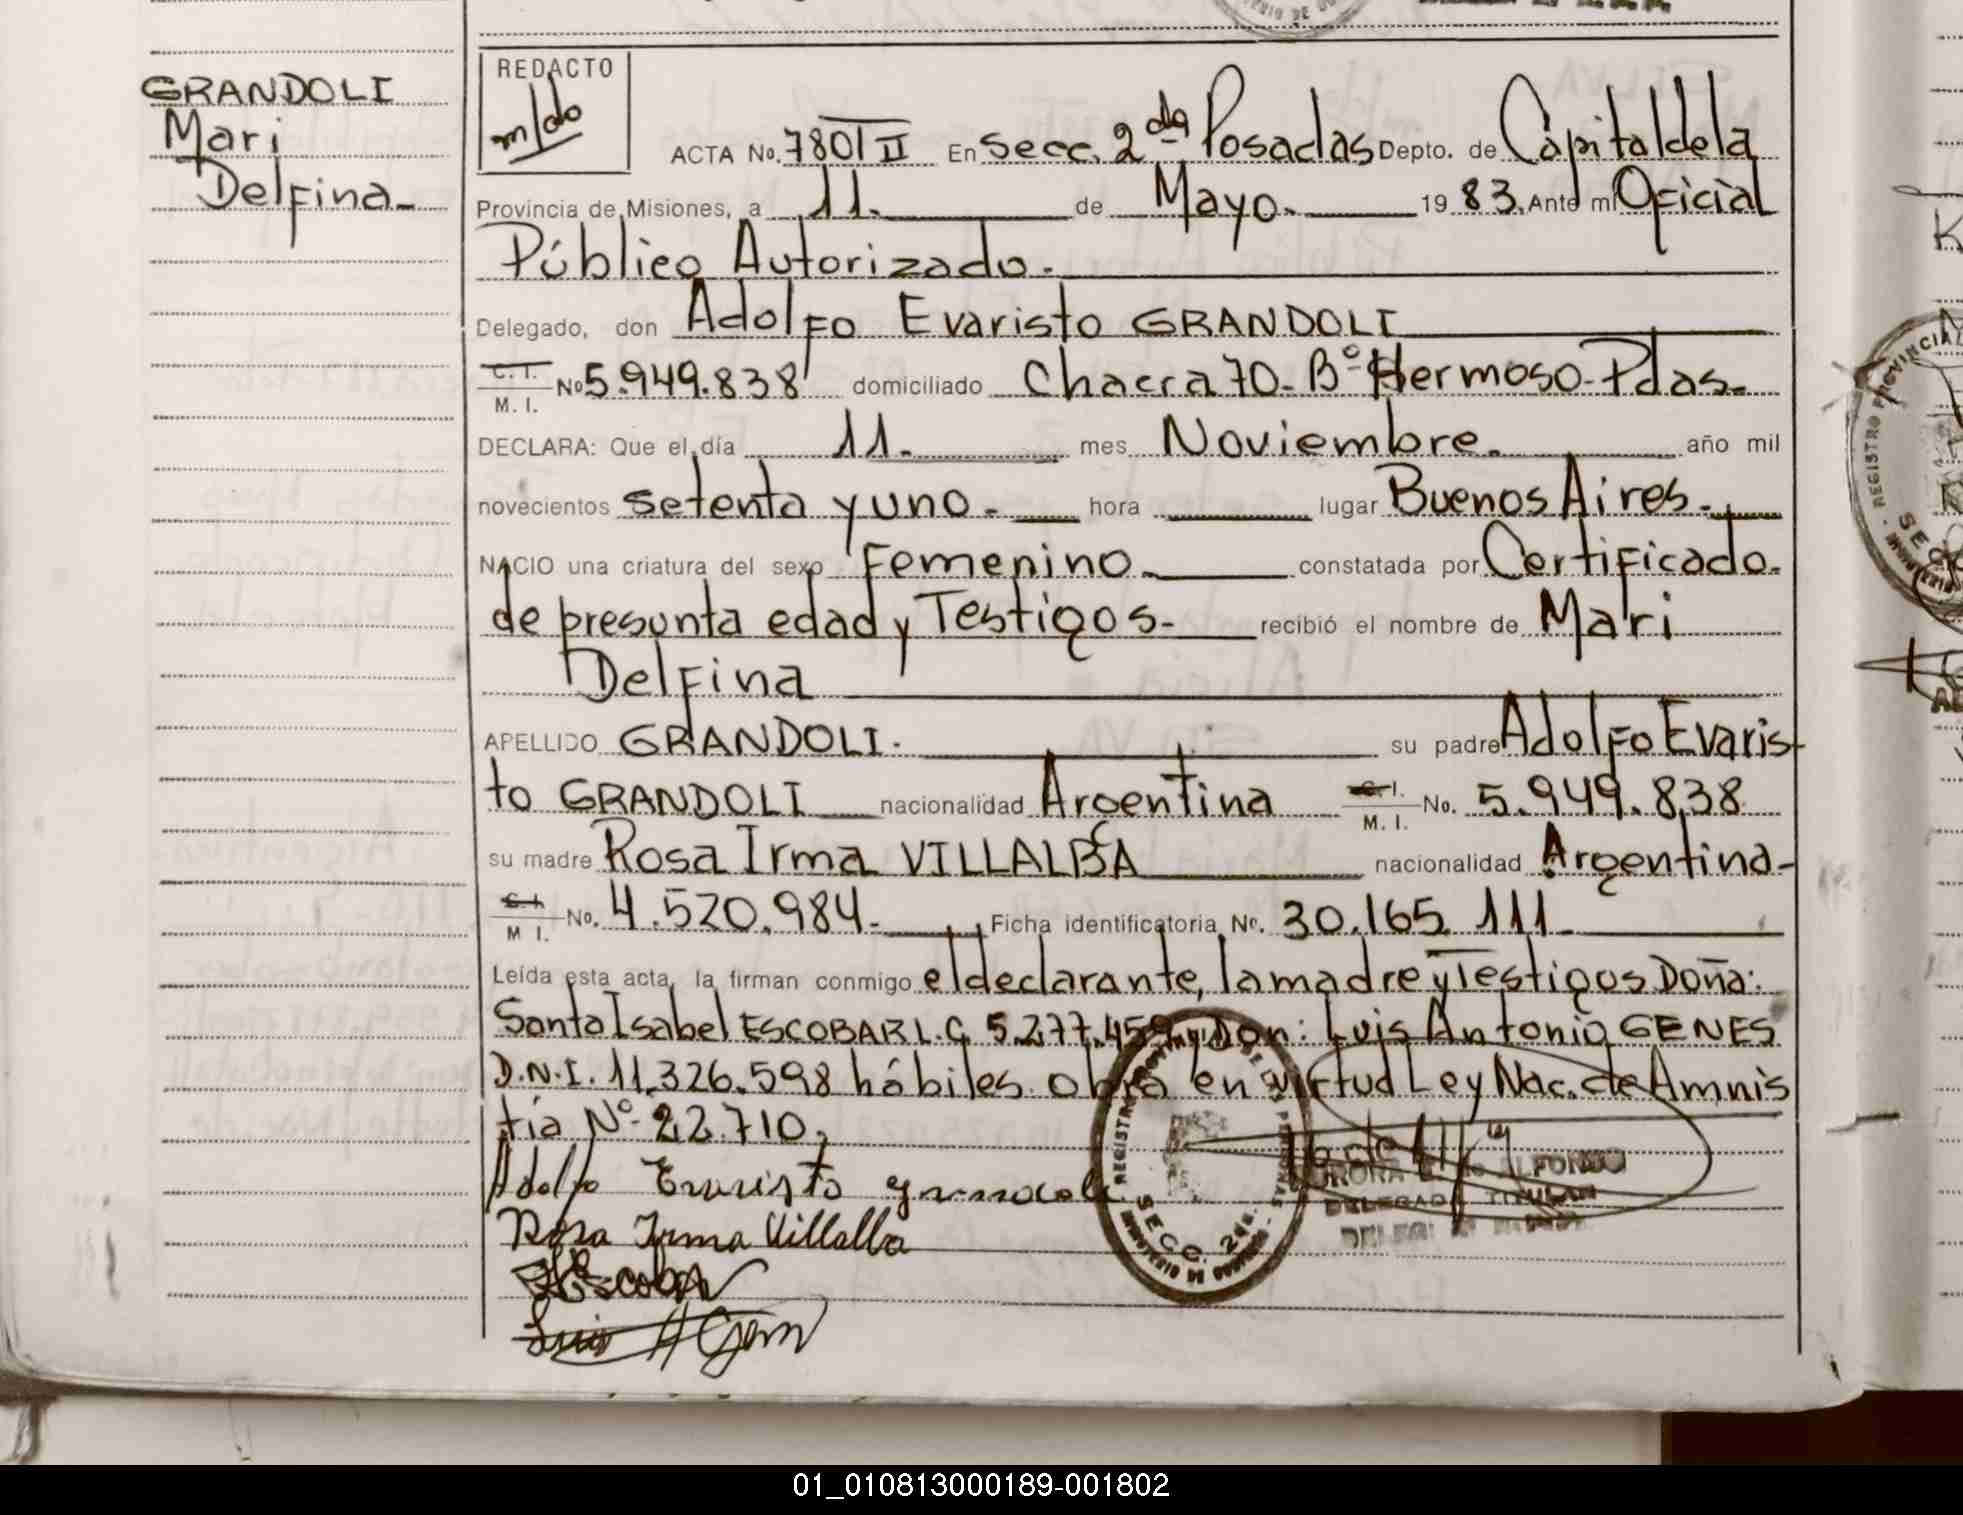 GRANDOLI
Mari
Delfina-
REDACTO
m/do
ACTA No. 780 T II En Secc. 2da Posadas Depto. de Capital de la
Provincia de Misiones, a 11. de Mayo. 19 83. Ante mi Oficial
Público Autorizado.
Delegado, don Adolfo Evaristo GRANDOLI
C. I.
M. I. No 5.949.838 domiciliado Chacra 70- Bº Hermoso- Pdas-
DECLARA: Que el día 11. mes Noviembre. año mil
novecientos setenta y uno- hora lugar Buenos Aires-
NACIO una criatura del sexo Femenino. constatada por Certificado.
de presunta edad y Testigos- recibió el nombre de Mari
Delfina
APELLIDO GRANDOLI. su padre Adolfo Evaris
to GRANDOLI nacionalidad Argentina C. I.
M. I. No. 5.949.838
su madre Rosa Irma VILLALBA nacionalidad Argentina-
C. I.
M I. No. 4.520.984- Ficha identificatoria Nº. 30.165.111-
Leída esta acta, la firman conmigo el declarante, la madre y Testigos Doña:
Santa Isabel ESCOBAR L.C. 5.277.459 y Don: Luis Antonio GENES
D.N.I. 11.326.598 hábiles. Obra en virtud Ley Nac. de Amnis
tía Nº 22.710.
Adolfo Evaristo grandoli
Rosa Irma Villalba
Escobar
Luis A Genes
REGISTRO PROVINCIAL DE LAS PERSONAS
SECC. 2da.
MINISTERIO DE GOBIERNO
ALFONSO
DELEGADA TITULAR
01_010813000189-001802